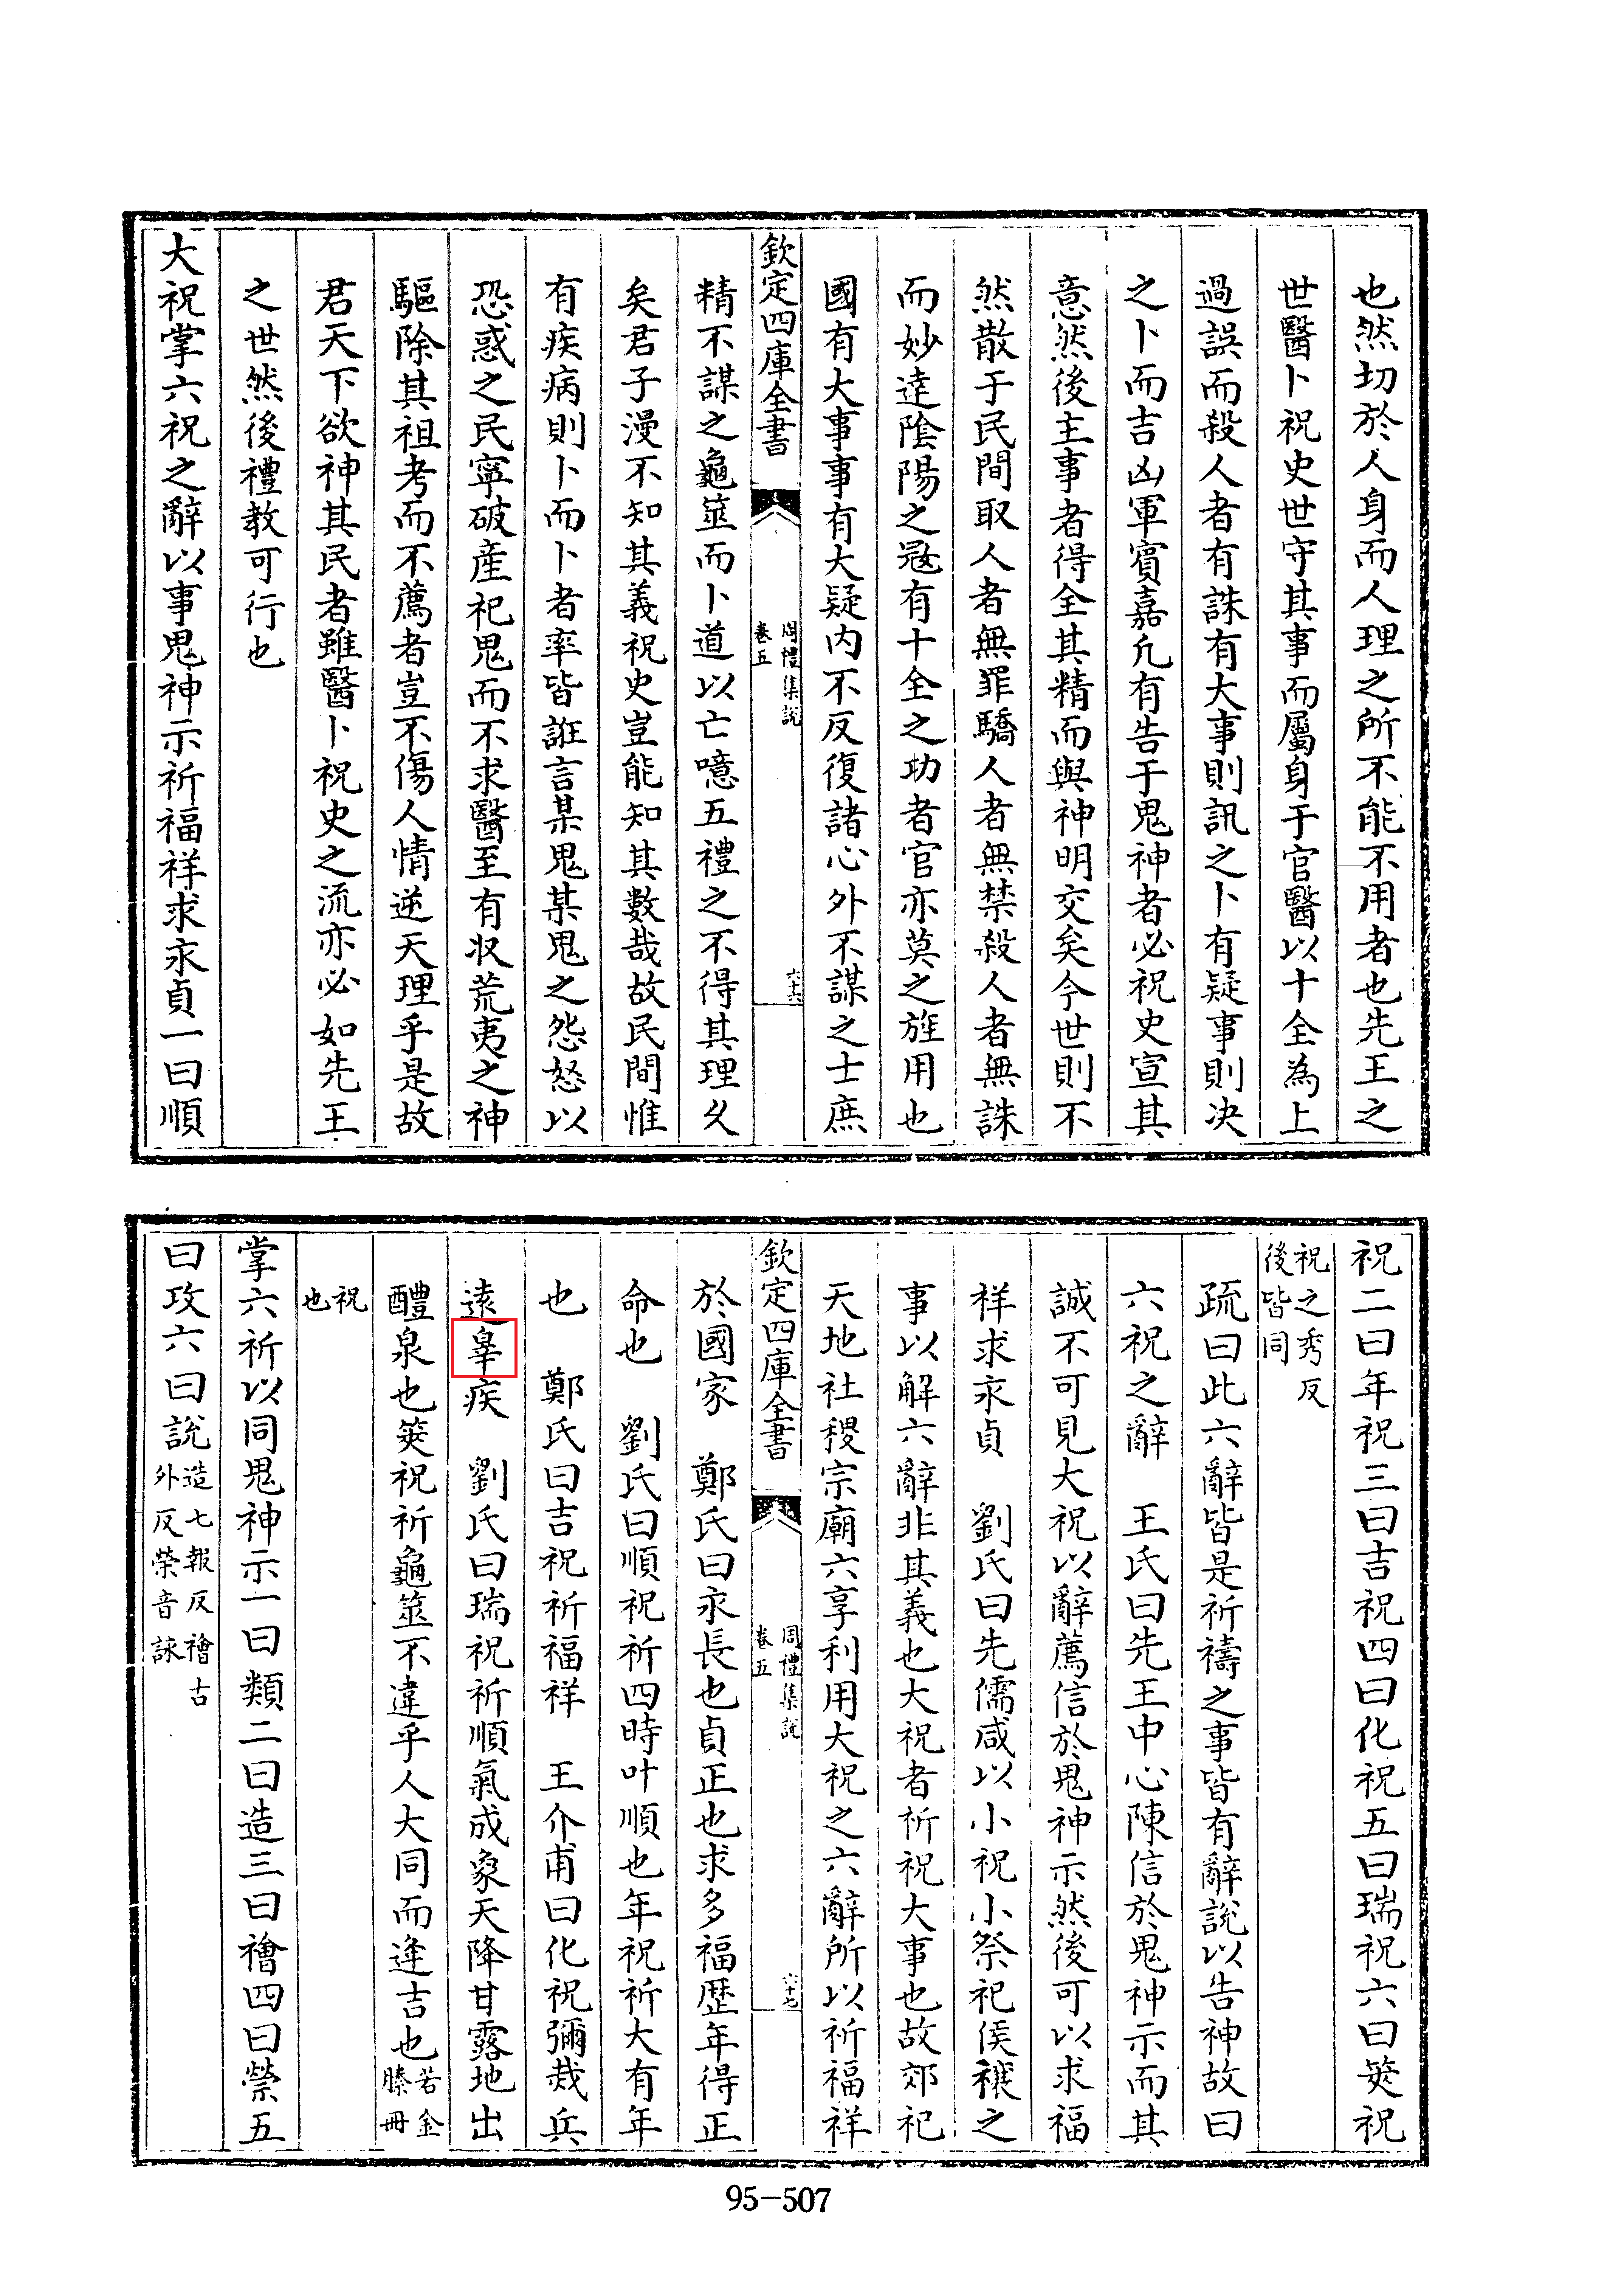 也然切於人身而人理之所不能不用者也先王之
世醫卜祝史世守其事而屬身于官醫以十全為上
過誤而殺人者有誅有大事則訊之卜有疑事則决
之卜而吉凶軍賓嘉凢有告于鬼神者必祝史宣其
意然後主事者得全其精而與神明交矣今世則不
然散于民間取人者無罪驕人者無禁殺人者無誅
而妙逹隂陽之冦有十全之功者官亦莫之旌用也
國有大事事有大疑内不反復諸心外不謀之士庶
欽定四庫全書
周禮集說
卷五
六十六
精不謀之龜筮而卜道以亡噫五禮之不得其理乆
矣君子漫不知其義祝史豈能知其數哉故民間惟
有疾病則卜而卜者率皆誑言某鬼某鬼之怨怒以
恐惑之民寧破産祀鬼而不求醫至有収荒夷之神
驅除其祖考而不薦者豈不傷人情逆天理乎是故
君天下欲神其民者雖醫卜祝史之流亦必如先王
之世然後禮教可行也
大祝掌六祝之辭以事鬼神示祈福祥求永貞一曰順
祝二曰年祝三曰吉祝四曰化祝五曰瑞祝六曰筴祝
祝之秀反
後皆同
疏曰此六辭皆是祈禱之事皆有辭說以告神故曰
六祝之辭　王氏曰先王中心陳信於鬼神示而其
誠不可見大祝以辭薦信於鬼神示然後可以求福
祥求永貞　劉氏曰先儒咸以小祝小祭祀侯禳之
事以解六辭非其義也大祝者祈祝大事也故郊祀
天地社稷宗廟六享利用大祝之六辭所以祈福祥
欽定四庫全書
周禮集說
卷五
六十七
於國家　鄭氏曰永長也貞正也求多福歴年得正
命也　劉氏曰順祝祈四時叶順也年祝祈大有年
也　鄭氏曰吉祝祈福祥　王介甫曰化祝彌烖兵
遠辠疾　劉氏曰瑞祝祈順氣成象天降甘露地出
醴泉也筴祝祈龜筮不違乎人大同而逢吉也若金
縢冊
祝
也
掌六祈以同鬼神示一曰類二曰造三曰禬四曰禜五
曰攻六曰說造七報反禬古
外反禜音詠
95-507